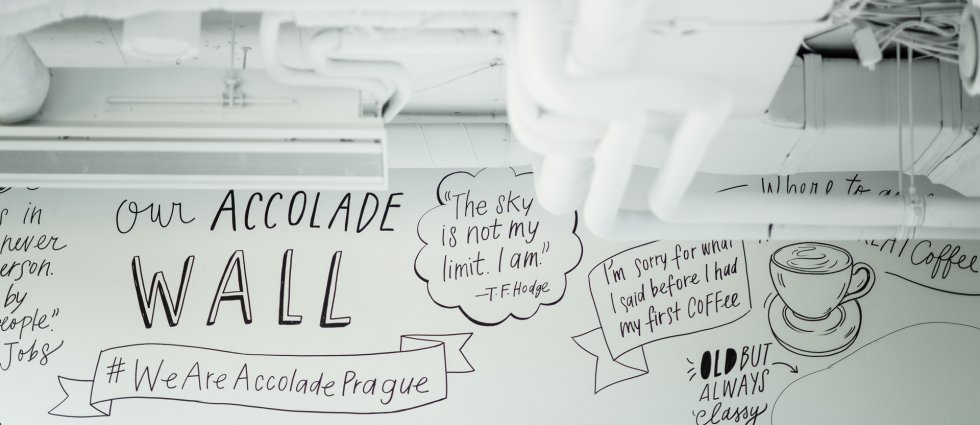 s in
never
erson.
by
eople."
Jobs
our ACCOLADE
WALL
#WeAreAccoladePrague
"The sky
is not my
limit. I am."
—T.F. Hodge
I'm sorry for what
I said before I had
my first COFFee
— Where to
Coffee
OLD BUT
ALWAYS
classy